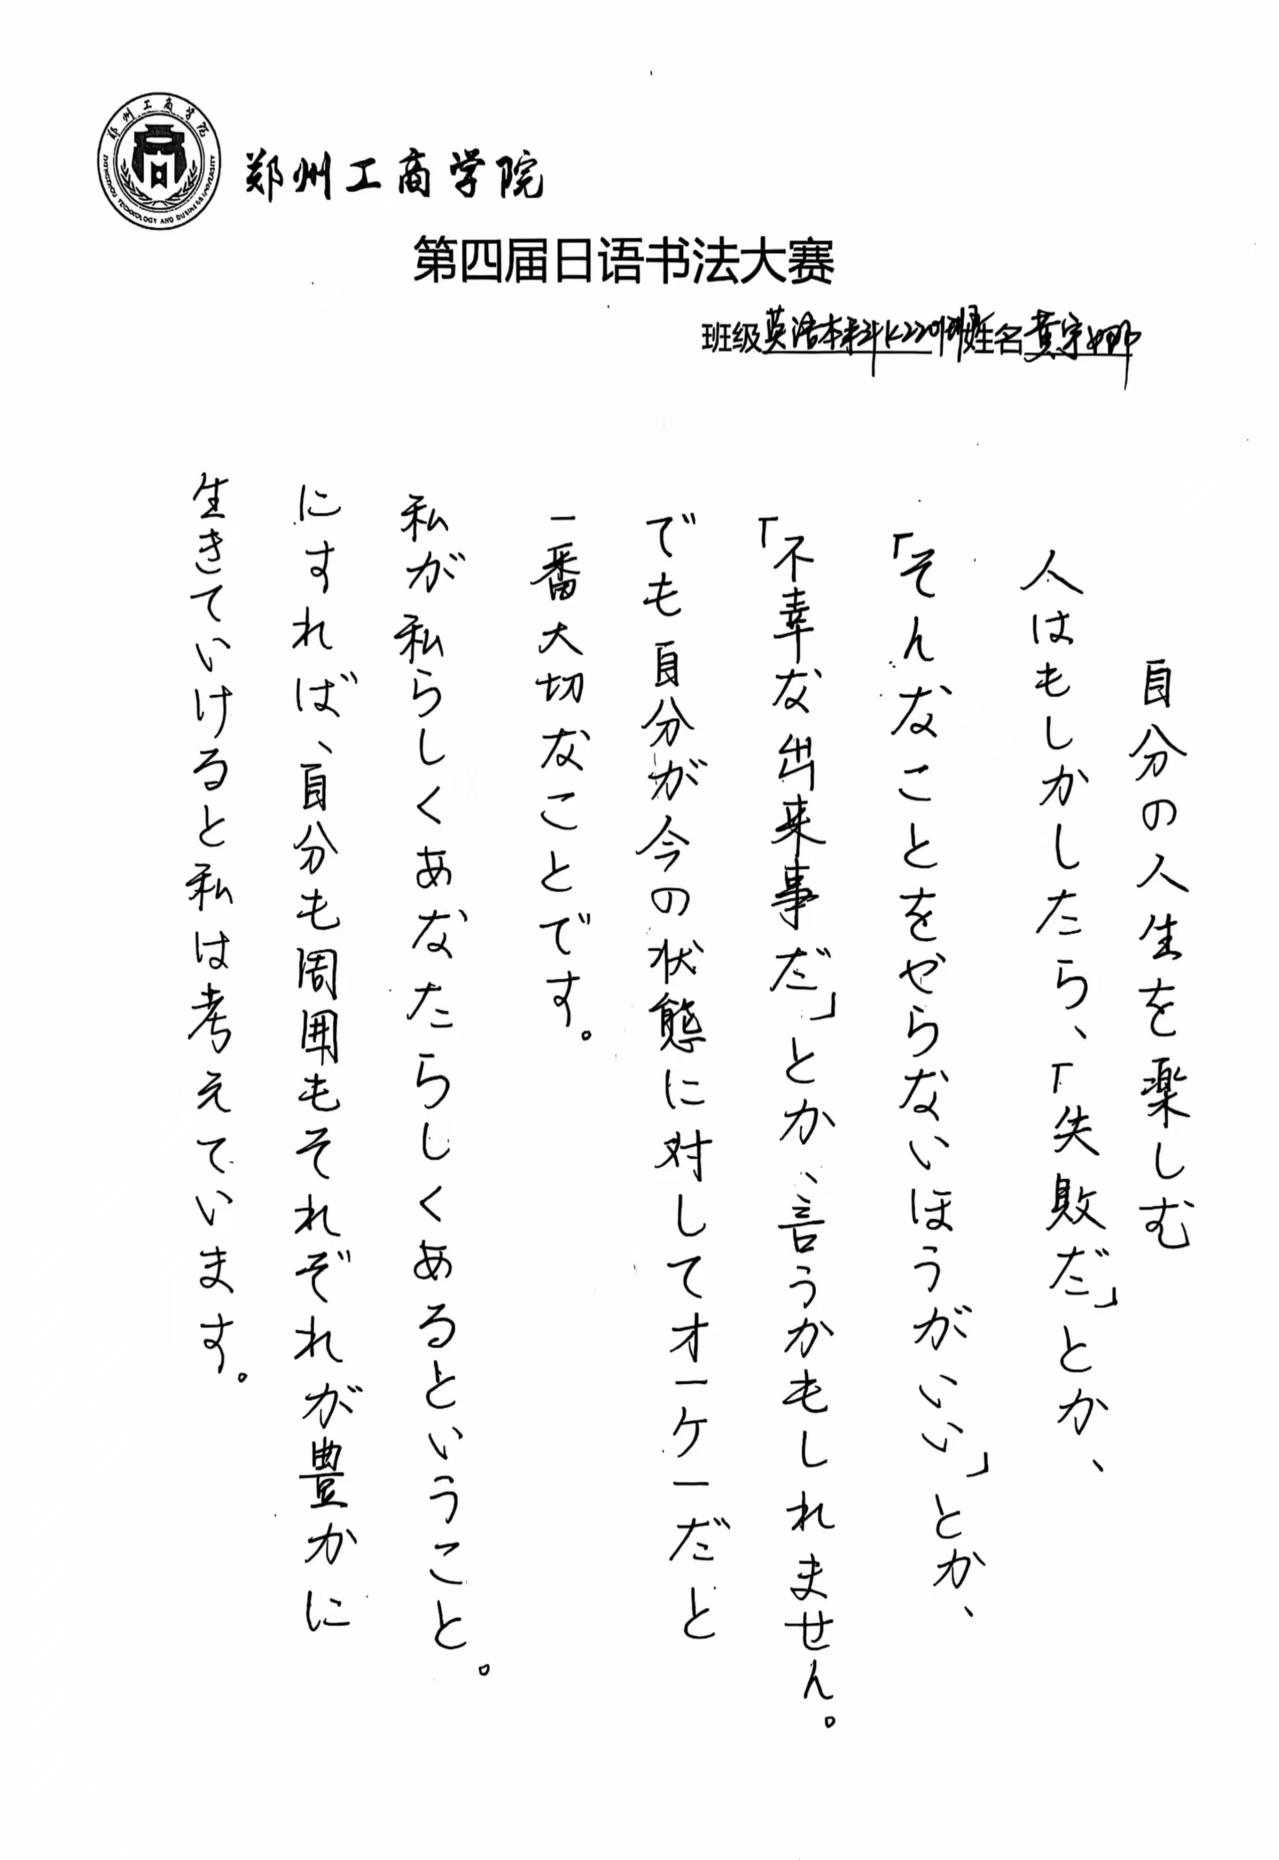 郑州工商学院
ZHENGZHOU TECHNOLOGY AND BUSINESS UNIVERSITY
郑州工商学院
第四届日语书法大赛
班级英语本科K2201班姓名黄宗娜
自分の人生を楽しむ
人はもしかしたら、「失敗だ」とか、
「そんなことをやらないほうがいい」とか、
「不幸な出来事だ」とか、言うかもしれません。
でも自分が今の状態に対してオーケーだと
一番大切なことです。
私が私らしくあなたらしくあるということ。
にすれば、自分も周囲もそれぞれが豊かに
生きていけると私は考えています。